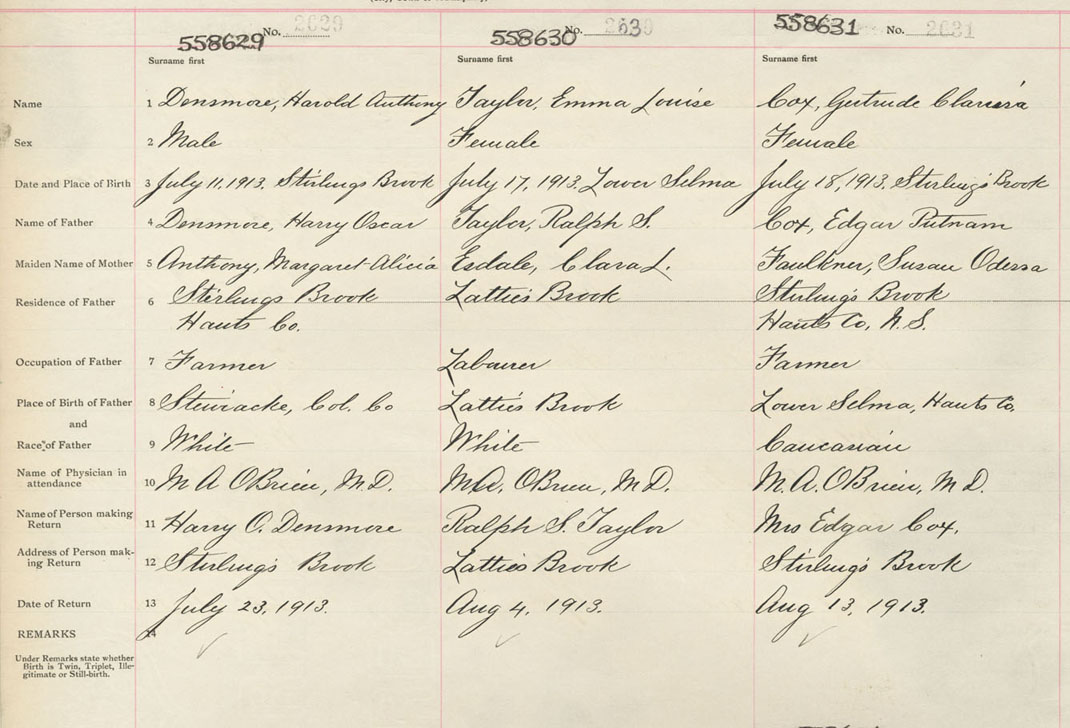 No. 2629 No. 2630 No. 2631
558629 558630 558631
Surname first Surname first Surname first
Name 1 Densmore, Harold Anthony Taylor, Emma Louise Cox, Gertrude Clarissa
Sex 2 Male Female Female
Date and Place of Birth 3 July 11, 1913. Stirlings Brook July 17, 1913. Lower Selma July 18, 1913, Stirling's Brook
Name of Father 4 Densmore, Harry Oscar Taylor, Ralph S. Cox, Edgar Putnam
Maiden Name of Mother 5 Anthony, Margaret Alicia Esdale, Clara L. Faulkner, Susan Odessa
Residence of Father 6 Stirlings Brook Latties Brook Stirling's Brook
Hants Co. Hants Co, N.S.
Occupation of Father 7 Farmer Labourer Farmer
Place of Birth of Father 8 Stewiacke, Col. Co Latties Brook Lower Selma, Hants Co,
and
Race of Father 9 White White Caucasian
Name of Physician in
attendance 10 M A O'Brien, M.D. M.A. O'Brien, M.D. M.A. O'Brien, M.D.
Name of Person making
Return 11 Harry O. Densmore Ralph S. Taylor Mrs Edgar Cox,
Address of Person mak-
ing Return 12 Stirling's Brook Latties Brook Stirling's Brook
Date of Return 13 July 23, 1913. Aug 4, 1913. Aug 13, 1913.
REMARKS 14
Under Remarks state whether
Birth is Twin, Triplet, Ille-
gitimate or Still-birth.